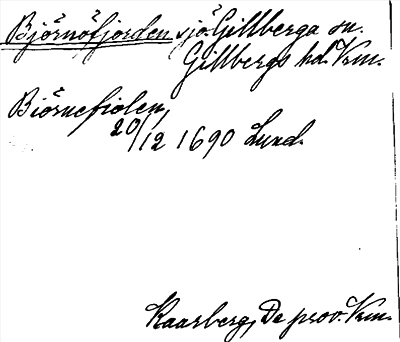 Björnöfjorden sjö. Gillberga sn.
Gillbergs hd. Vrm.
Biörnefiolen,
20/12 1690 Lund.
Kaarberg, De prov. Vrm.